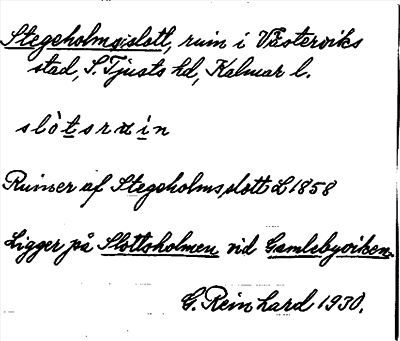 Stegeholms slott, ruin i Västerviks
stad, S. Tjusts hd, Kalmar l.
slòtsrɯin
Ruiner af Stegeholms slott L 1858
Ligger på Slottsholmen vid Gamlebyviken.
G. Reinhard 1930.